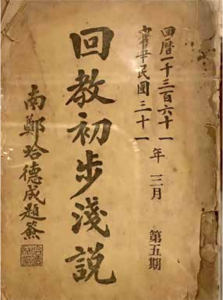 回曆一千三百六十一
中華民國三十一 年 三月 第五期
回教初步淺說
南鄭哈德成題簽